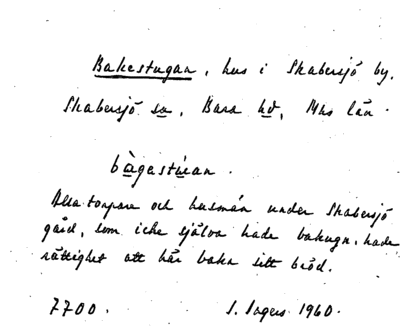 Bakestugan, hus i Skabersjö by,
Skabersjö sn, Bara hd, Mhs län.
bàgestúan.
Alla torpare och husmän under Skabersjö
gård, som icke själva hade bakugn, hade
rättighet att här baka sitt bröd.
7700. I. Ingers 1960.